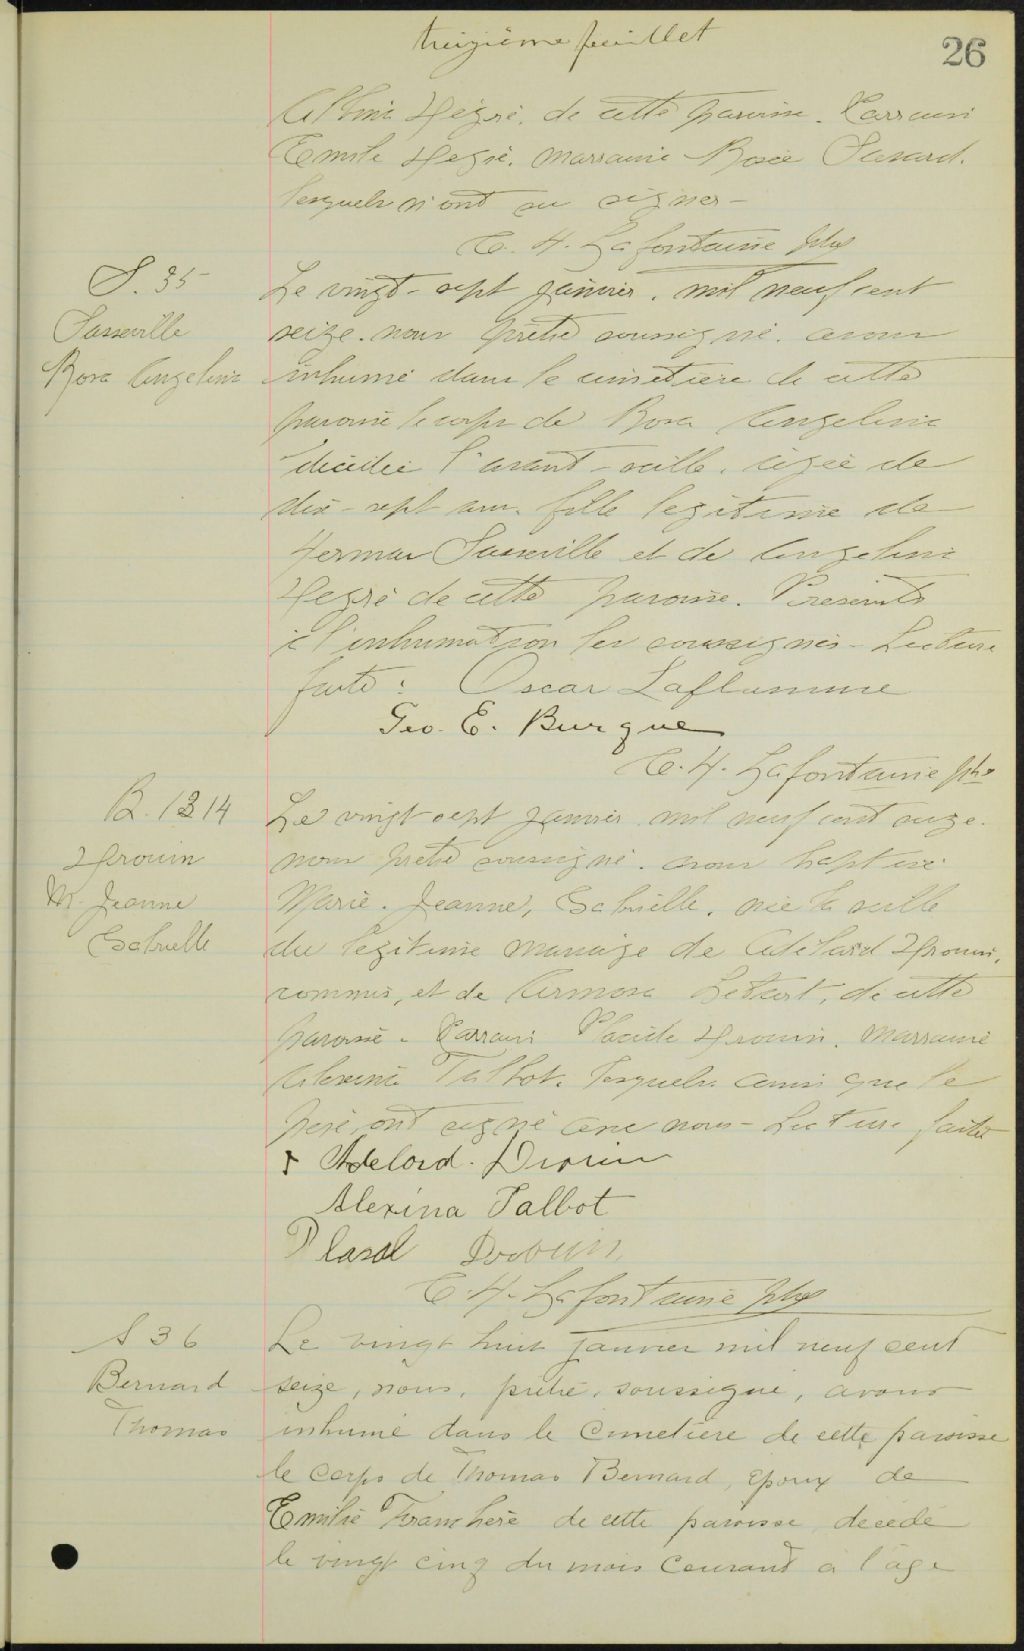 treizième feuillet
26
Albina Hégré, de cette paroisse. Parrain
Emile Hegré. marraine Rosée Savard.
lesquels n'ont su signer-
E. H. Lafontaine ptre
S. 35
Sasseville
Rosa Angelina
Le vingt-sept janvier. mil neuf cent
seize. nous prêtre soussigné. avons
inhumé dans le cimetière de cette
paroisse le corps de Rosa Angelina
décédée l'avant-veille. agée de
dix-sept ans. fille légitime de
Herman Sasseville et de Angelina
Hegré de cette paroisse. Présents
à l'inhumation les soussignés- Lecture
faite: Oscar Laflamme
Geo. E. Burque
E. H. Lafontaine ptre
B. 14
Drouin
M. Jeanne
Gabrielle
Le vingt sept janvier mil neuf cent seize.
nous prêtre soussigné. avons baptisé
Marie. Jeanne, Gabrielle. née la veille
du légitime mariage de Adélard Drouin,
commis, et de Armosa de cette
paroisse. Parrain Placide Drouin. Marraine
Alexina Talbot. lesquels ainsi que le
père, ont signé avec nous- Lecture faite
Adelord. Drouin
Alexina Talbot
Drouin
E. H. Lafontaine ptre
S 36
Bernard
Thomas
Le vingt huit janvier mil neuf cent
seize, nous, prêtre, soussigné, avons
inhumé dans le cimetière de cette paroisse
le corps de Thomas Bernard, époux de
Emilie Franchère de cette paroisse, décédé
le vingt cinq du mois courant à l'age